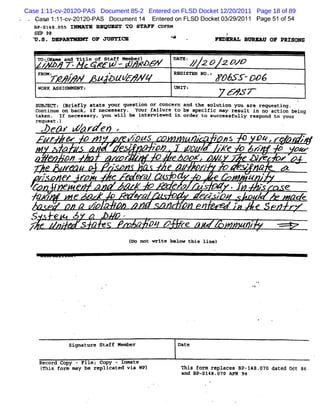 Case 1:11-cv-20120-PAS Document 85-2 Entered on FLSD Docket 12/20/2011 Page 18 of 89
Case 1:11-cv-20120-PAS Document 14 Entered on FLSD Docket 03/29/2011 Page 51 of 54
BP-S148.055 INMATE REQUEST TO STAFF CDFRM
SEP 98
U.S. DEPARTMENT OF JUSTICE FEDERAL BUREAU OF PRISONS
TO: (Name and Title of Staff Member)
LINDA T. McGREW - WARDEN
DATE:
11/20/2010
FROM:
TRAIAN BUJDUVEANU
REGISTER NO.:
80655-006
WORK ASSIGNMENT:
UNIT:
7 EAST
SUBJECT: (Briefly state your question or concern and the solution you are requesting.
Continue on back, if necessary. Your failure to be specific may result in no action being
taken. If necessary, you will be interviewed in order to successfully respond to your
request.)
Dear Warden,
Further to my previous communications to you, regarding
my status and designation, I would like to bring to your
attention that according to the book, only The Director of
The Bureau of Prisons has the authority to designate a
prisoner from the Federal Custody to the Community
Confinement and back to Federal Custody. In this case
taking me back to Federal Custody decision should be made
based on a violation and sanction entered in the Sentry
System by a DHO.
The United States Probation Office and Community
(Do not write below this line)
Signature Staff Member
Date
Record Copy - File; Copy - Inmate
(This form may be replicated via WP)
This form replaces BP-148.070 dated Oct 86
and BP-S148.070 APR 94